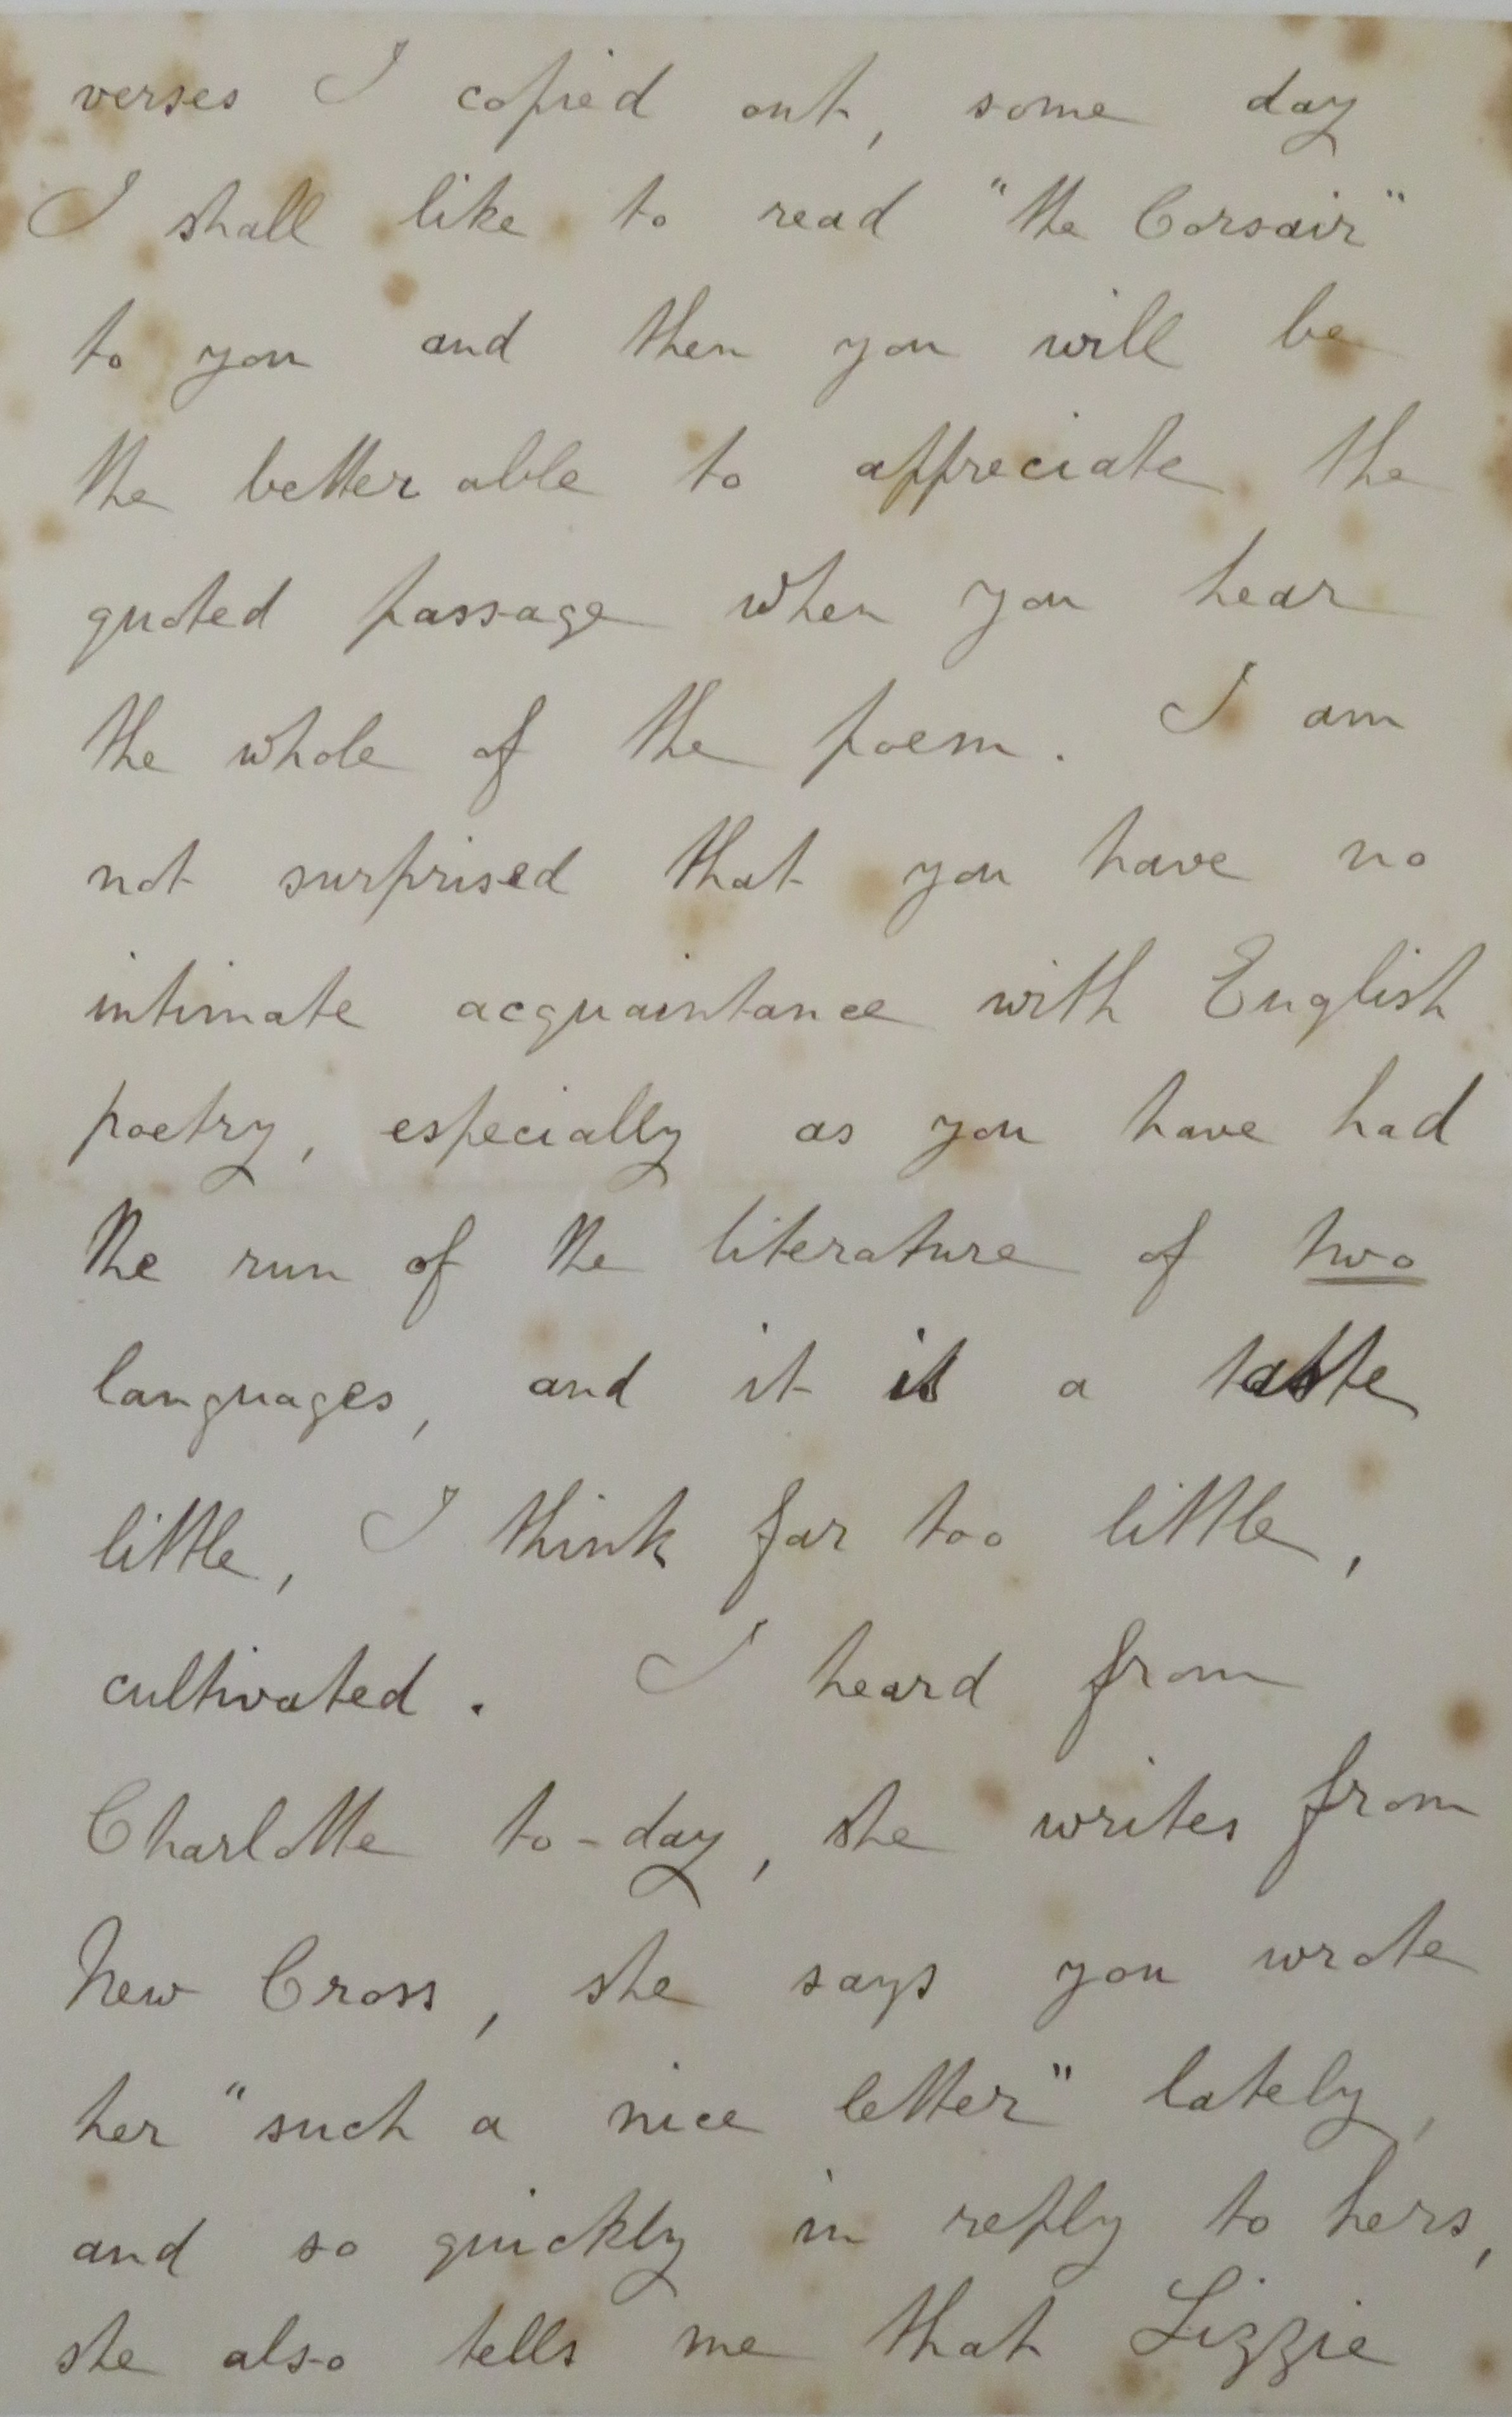 verses I copied out, some day
I shall like to read "the Corsair"
to you and then you will be
the better able to appreciate the
quoted passage when you hear
the whole of the poem. I am
not surprised that you have no
intimate acquaintance with English
poetry, especially as you have had
the run of the literature of two
languages, and it is a taste
little, I think far too little,
cultivated. I heard from
Charlotte to-day, she writes from
New Cross, she says you wrote
her "such a nice letter" lately,
and so quickly in reply to hers,
she also tells me that Lizzie